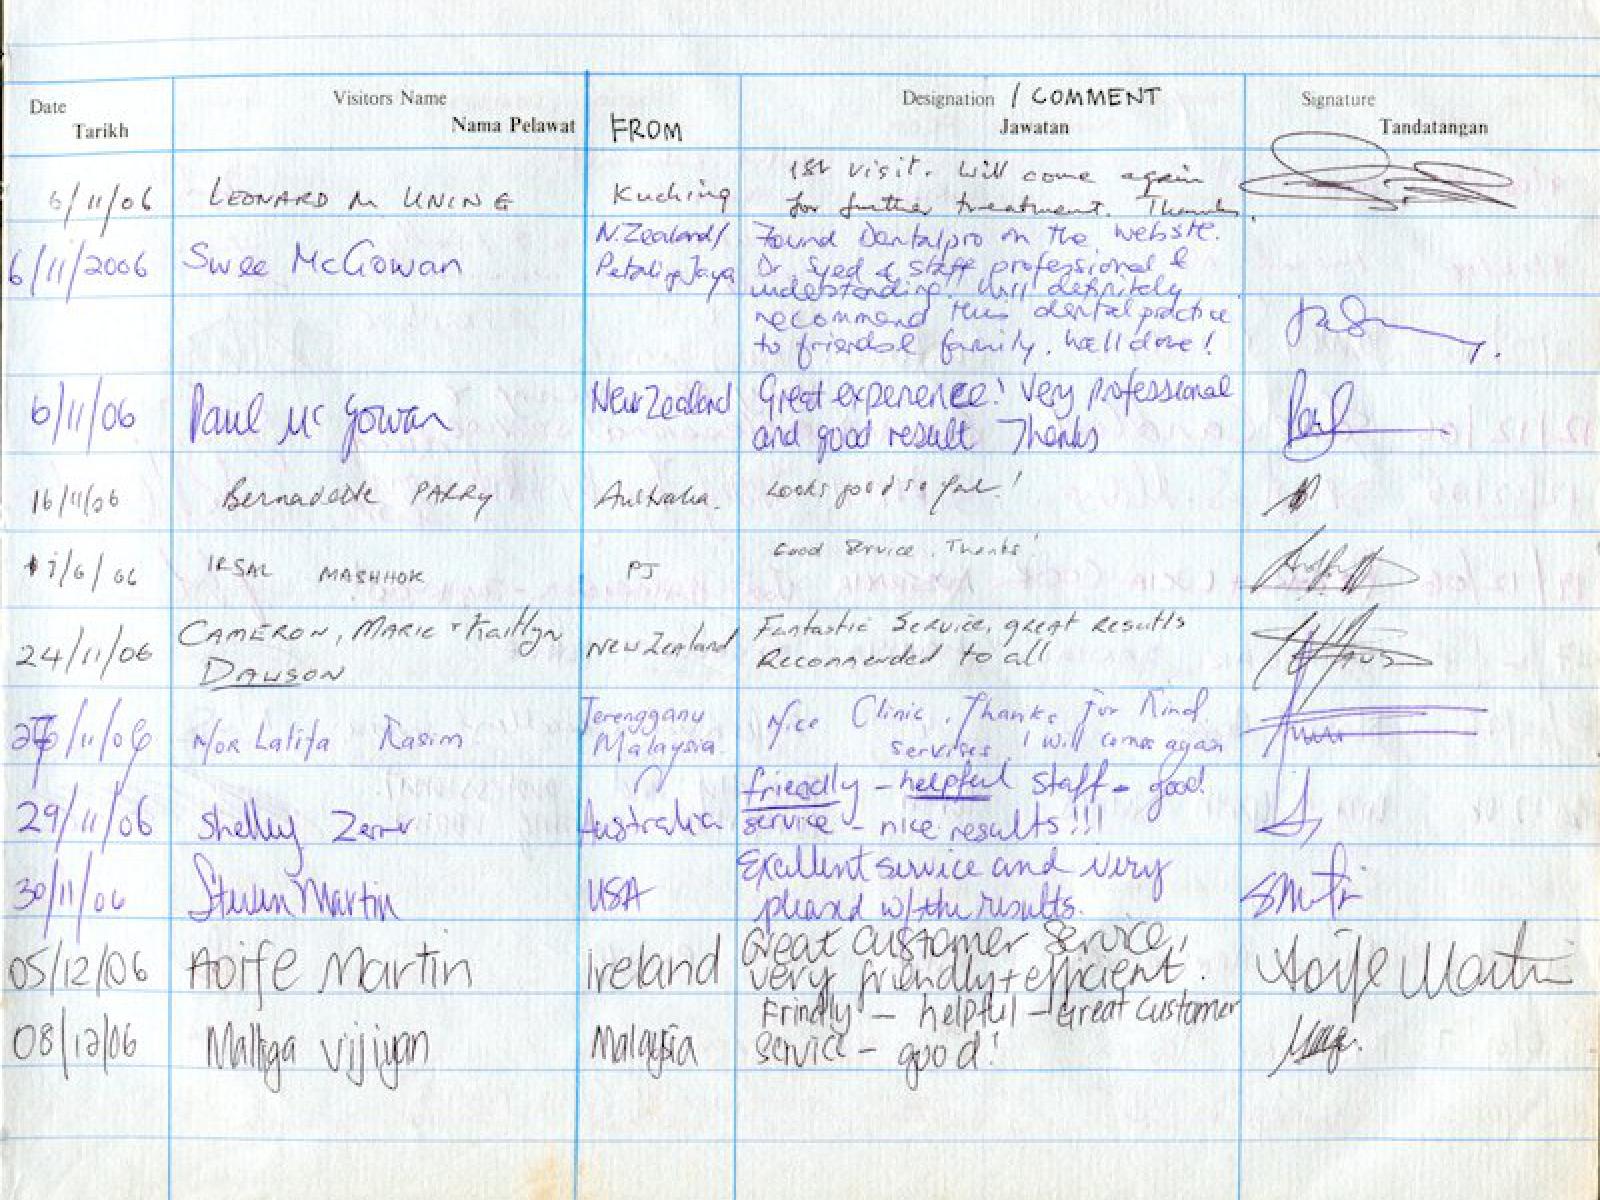 Date Visitors Name Designation / COMMENT Signature
Tarikh Nama Pelawat FROM Jawatan Tandatangan
6/11/06 LEONARD M UNING Kuching 1st visit. Will come again
for further treatment. Thanks.
6/11/2006 Swee McGowan N.Zealand/ Found Dentalpro on the website.
Petaling Jaya Dr. Syed & staff professional &
understanding. Will definitely
recommend this dental practice
to friends & family. Well done!
6/11/06 Paul McGowan New Zealand Great experience! Very professional
and good result Thanks Paul
16/11/06 Bernadette PARRY Australia. Looks good so far!
7/6/06 IRSAL MASHHOR PJ Good Service. Thanks!
24/11/06 CAMERON, MARIE + Kaitlyn New Zealand Fantastic Service, great results
DAWSON Recommended to all
/11/06 Nor Latifa Kasim Terengganu Nice Clinic. Thanks for Kind
Malaysia services. I will come again
29/11/06 Shelley Australia friendly – helpful staff – good
service – nice results!!!
30/11/06 Steven Martin USA Excellent service and very
pleased w/ the results.
05/12/06 Aoife Martin Ireland Great Customer Service, Aoife Martin
very friendly + efficient.
08/12/06 Malliga Vijiyan Malaysia Frindly – helpful – Great customer
service – good!